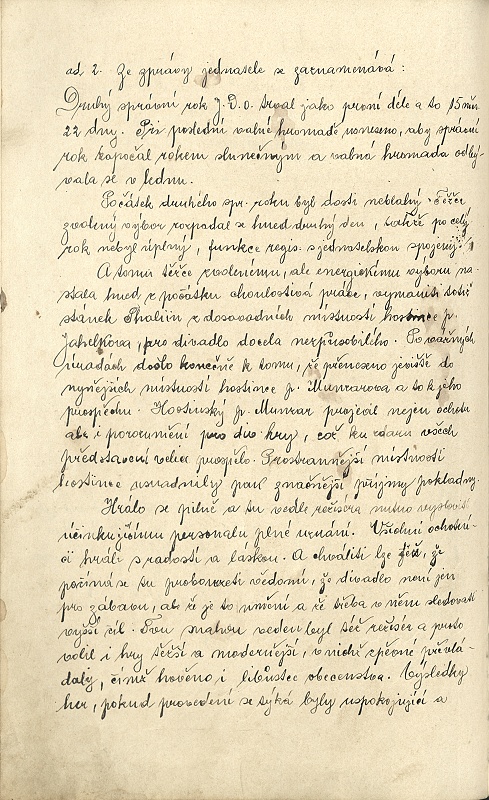 ad 2. Ze zprávy jednatele se zaznamenává:
Druhý správní rok J. D. O. trval jako první déle a to 15 měs.
22 dny. Při poslední valné hromadě usneseno, aby správní
rok započal rokem slunečným a valná hromada odbý-
vala se v lednu.
Počátek druhého spr. roku byl dosti neblahý. Těžce
zvolený výbor rozpadal se hned druhý den, takže po celý
rok nebyl úplný, funkce regis. s jednatelskou spojený.
A tomu těžce zvolenému, ale energickému výboru na-
stala hned z počátku choulostivá práce, vymaniti totiž
stánek Thaliin z dosavadních místností hostince p.
pro divadlo docela nezpůsobilého. Po vážných
úradách došlo konečně k tomu, že přenoseno jeviště do
nynějších místností hostince p. Munzarova a to k jeho
prospěchu. Hostinský p. Munzar projevil nejen ochotu
ale i porozumění pro div. hry, což ku zdaru všech
představení velice prospělo. Prostrannější místnosti
hostince usnadnily pak značnější příjmy pokladny.
Hrálo se pilně a tu vedle režiséra nutno vysloviti
účinkujícímu personalu plné uznání. Všichni ochotní-
ci hráli s radostí a láskou. A chváliti lze též, že
počíná se tu probouzeti vědomí, že divadlo není jen
pro zábavu, ale že je to umění a že třeba v něm sledovati
vyšší cíl. Tou snahou veden byl též režisér a proto
volil i hry těžší a modernější, v nichž zpěvné převlá-
daly, čímž hověno i libůstce obecenstva. Výsledky
her, pokud provedení se týká byly uspokojující a